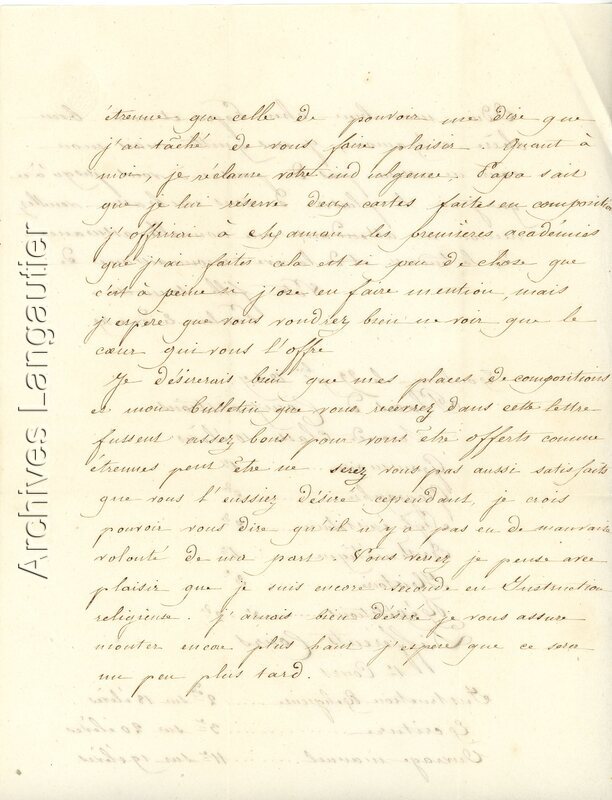 étrenne que celle de pouvoir me dire que
j'ai tâché de vous faire plaisir. Quant à
moi, je réclame vôtre indulgence. Papa sait
que je lui réserve deux cartes faites en composition
j'offrirai à les premières académies
que j'ai faites cela est si peu de chose que
c'est à peine si j'ose en faire mention, mais
j'espère que vous voudrez bien ne voir que le
cœur qui vous l'offre
Je désirerais bien que mes places de compositions
et mon bulletin que vous recevrez dans cette lettre
fussent assez bons pour vous être offerts comme
étrennes peut être ne serez vous pas aussi satisfaits
que vous l'eussiez désiré cependant, je crois
pouvoir vous dire qu'il n'y a pas eu de mauvaise
volonté de ma part. Vous verrez je pense avec
plaisir que je suis encore seconde en Instruction
religieuse. j'aurais bien désiré je vous assure
monter encore plus haut j'espère que ce sera
un peu plus tard.
Archives Langautier